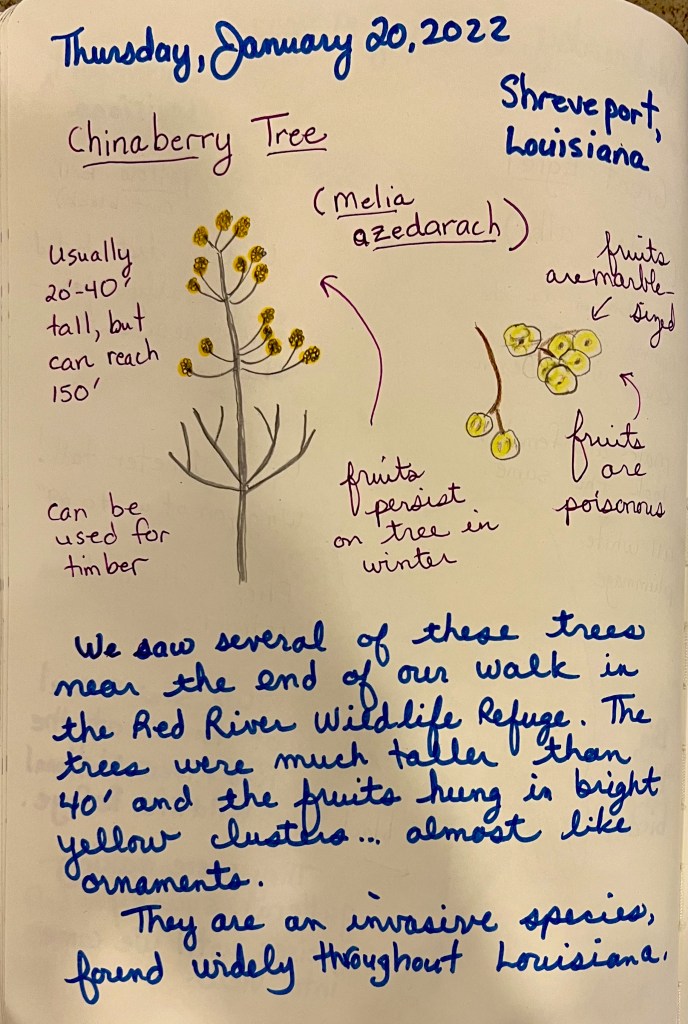 Thursday, January 20, 2022
Shreveport,
Louisiana
Chinaberry Tree
(Melia
azedarach)
Usually
20'-40'
tall, but
can reach
150'
fruits
are marble-
sized
fruits
are
poisonous
fruits
persist
on tree in
winter
can be
used for
timber
We saw several of these trees
near the end of our walk in
the Red River Wildlife Refuge. The
trees were much taller than
40' and the fruits hung in bright
yellow clusters... almost like
ornaments.
They are an invasive species,
found widely throughout Louisiana.